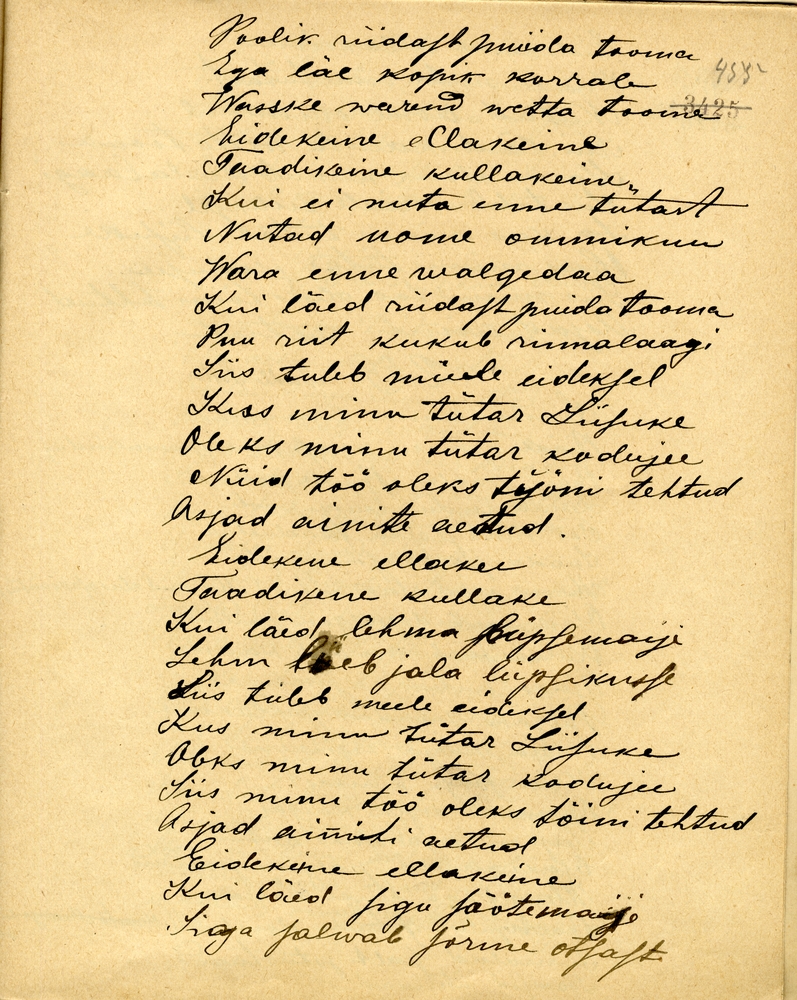 Poolik riidast puida tooma
Ega läe kopik korrale 455
Wasske warend wetta tooma 3425
Eidekeine ellakeine
Taadikeine kullakeine,
Kui ei nuta enne tütart
Nutad uome ommikuu
Wara enne walgedaa
Kui läed riidast puida tooma
Puu riit kukub rinnalaagi
Siis tuleb meele eideksel
Kuss minu tütar Liisuke
Oleks minu tütar kodujee
Nüid töö oleks tööni tehtud
Asjad ainite aetud.
Eidekene ellakee
Taadikene kullake
Kui läed lehma lüpsemaije
Lehm lööb jala lüpsikusse
Siis tuleb meele eideksel
Kus minu tütar Liisuke
Oleks minu tütar kodujee
Siis minu töö oleks töini tehtud
Asjad ainiti aetud
Eidekeine ellakeine
Kui läed sigu söötemaije
Siga salwab sõrme otsast